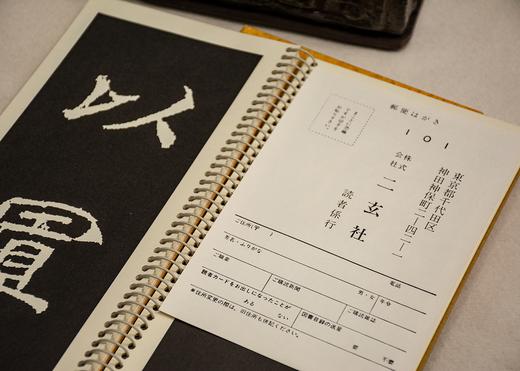 以
置
郵便はがき
101
東京都千代田区
神田神保町二ー四二ー一
株式
会社
二玄社
読者係行
ご住所(〒 )
電話
芳名・ふりがな
男・女
年令
ご職業
ご購読新聞
ご購読雑誌
読者カードをお出しになったことが
ある
ない
図書目録の送呈
要
不要
※住所変更の際は、旧住所も併記ください。